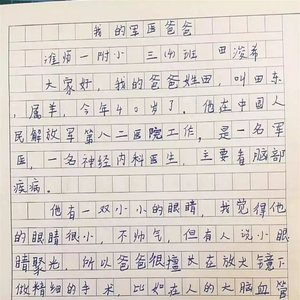 我的军医爸爸
淮师一附小 三(4)班 田浚希
大家好，我的爸爸姓田，叫田东
，属羊，今年40岁了。他在中国人
民解放军第八二医院工作，是一名军
医，一名神经内科医生，主要看脑部
疾病。
他有一双小小的眼睛，我觉得他
的眼睛很小，不帅气，但有人说小眼
睛聚光，所以爸爸很擅长在放大镜下
做精细的手术，比如在人的大脑血管